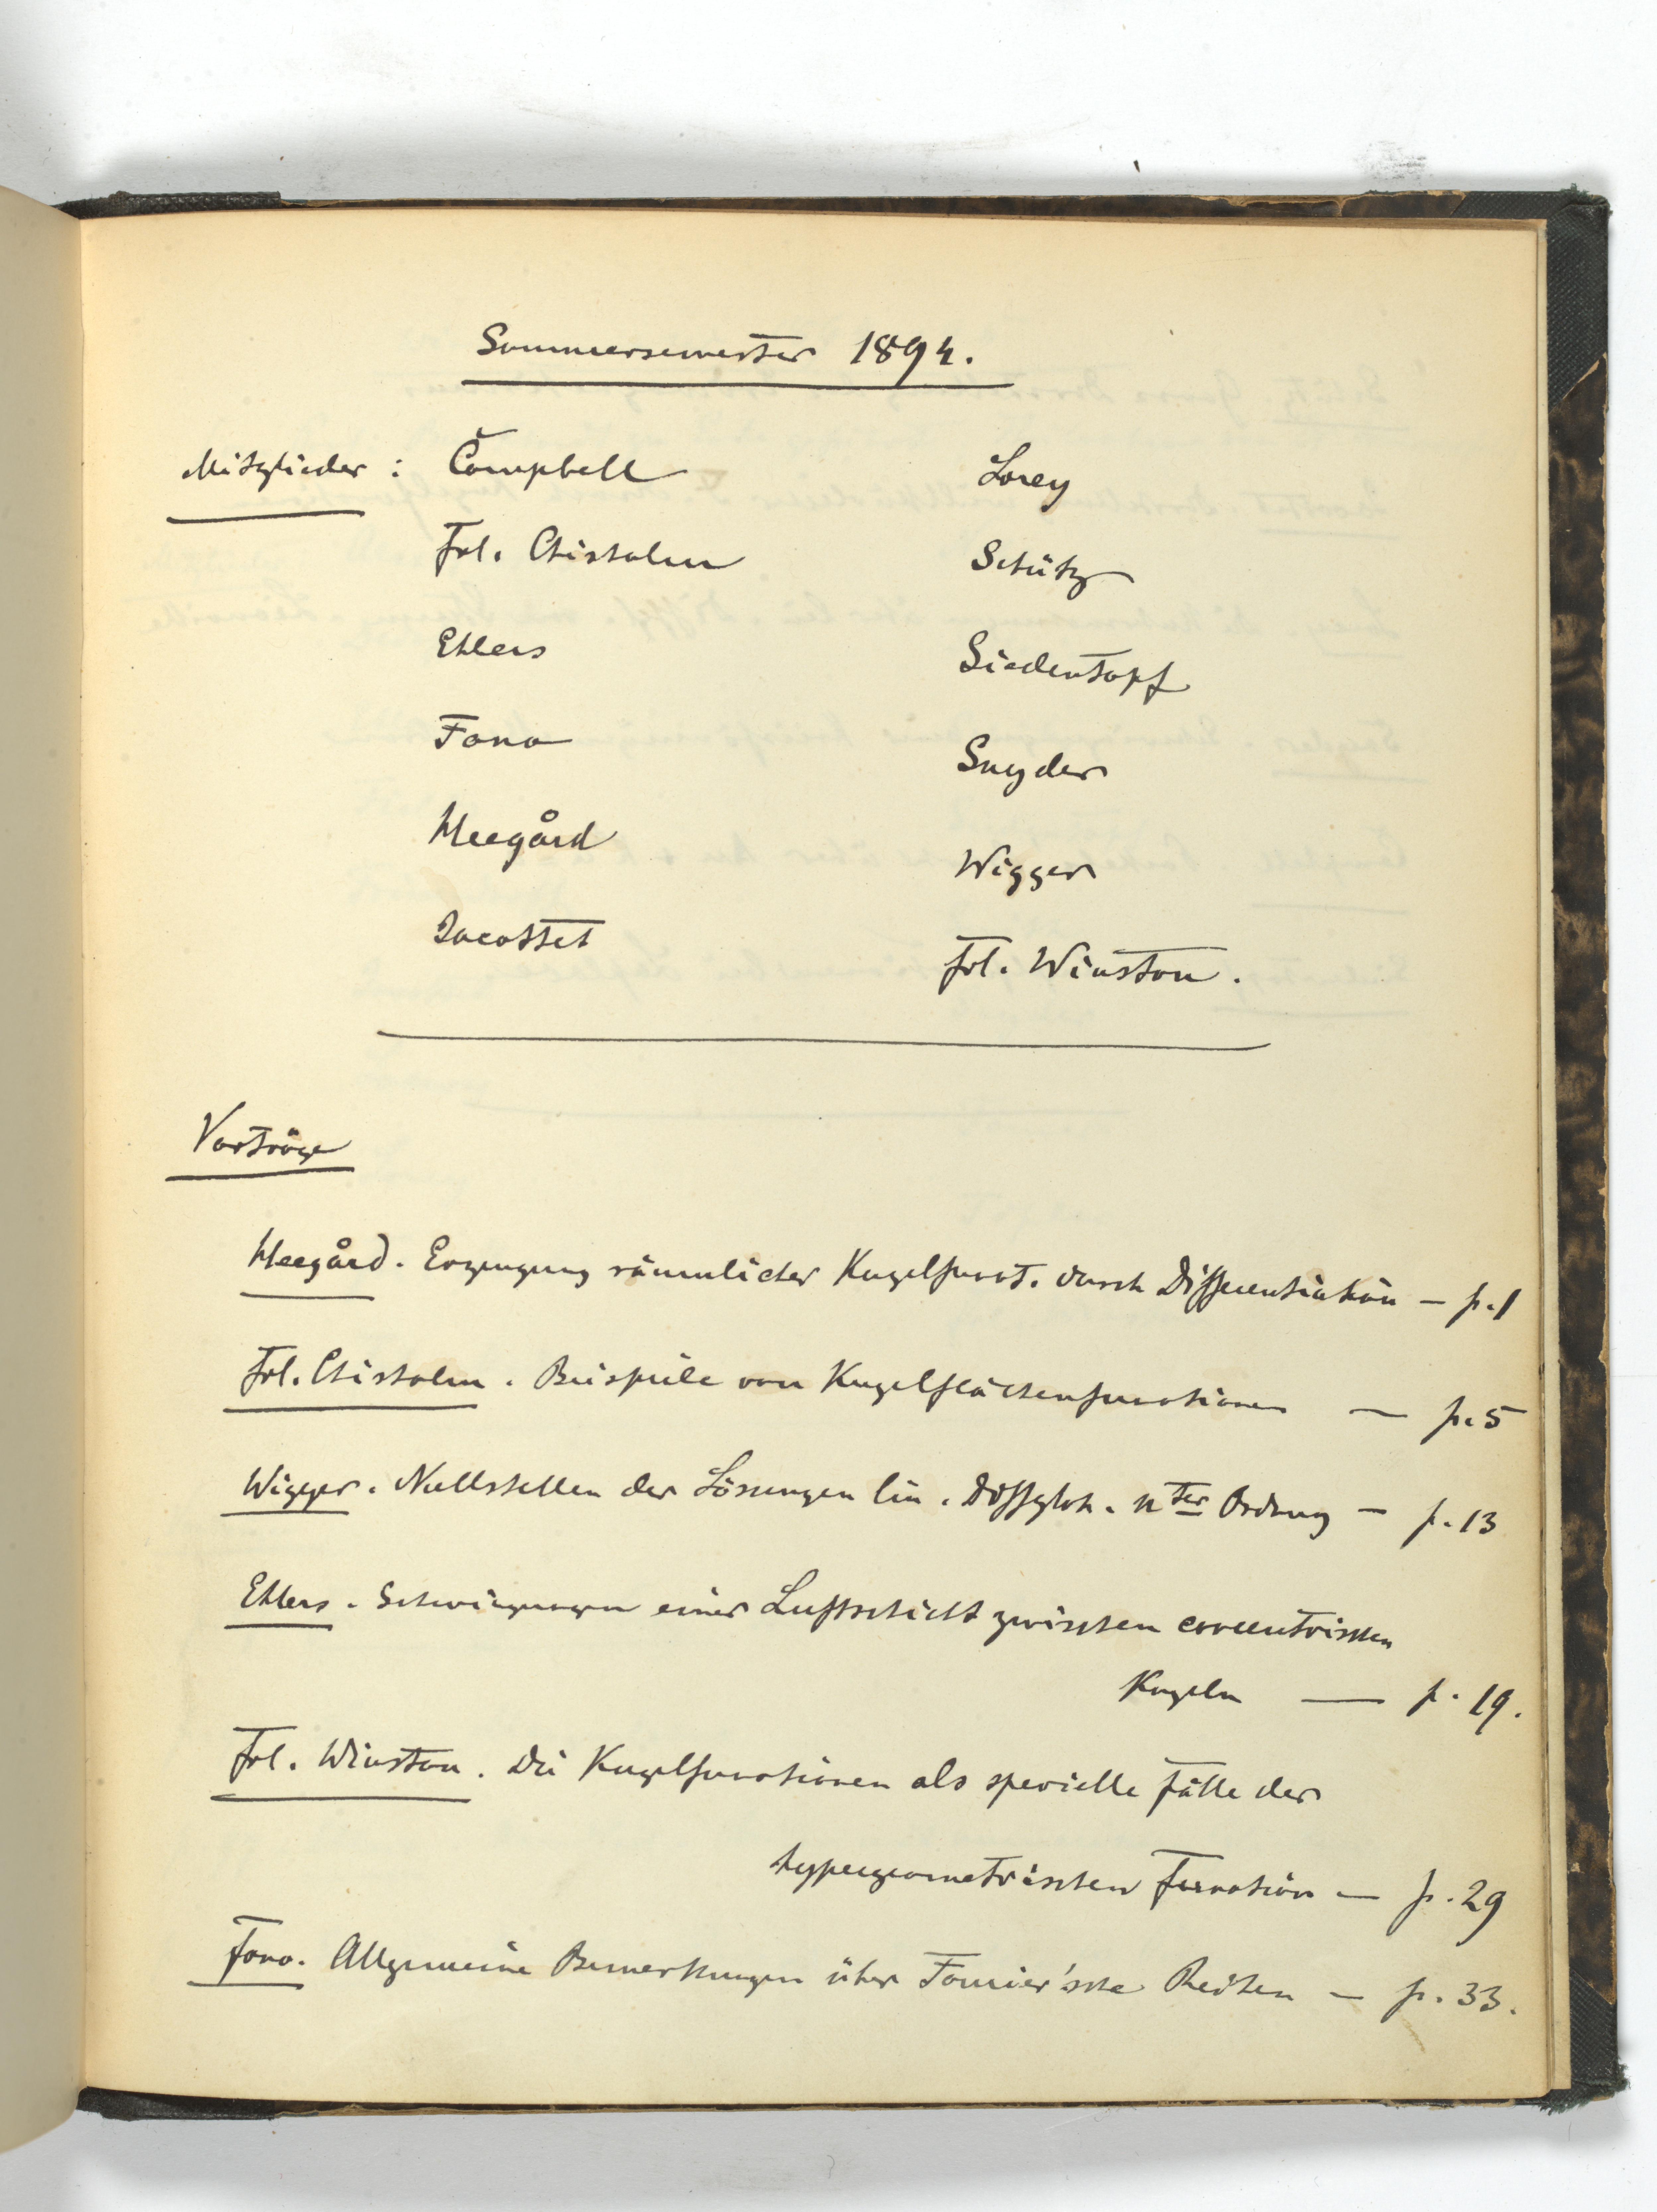 Sommersemester 1894.
Mitglieder : Campbell Lorey
Frl. Chisholm Schütz
Ehlers Siedentopf
Fano Snyder
Heegård Wigger
Jacottet Frl. Winston.
Vorträge
Heegård. Erzeugung räumlicher Kugelfunct. durch Differentiation — p. 1
Frl. Chisholm. Beispiele von Kugelflächenfunctionen — p. 5
Wigger. Nullstellen der Lösungen lin. Diffglch. nter Ordnung — p. 13
Ehlers. Schwingungen einer Luftschicht zwischen concentrischen
Kugeln — p. 19.
Frl. Winston. Die Kugelfunctionen als specielle Fälle der
hypergeometrischen Function — p. 29
Fano. Allgemeine Bemerkungen über Fourier'sche Reihen — p. 33.